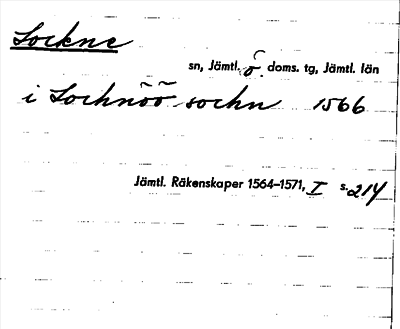 Lockne
sn, Jämtl. ö. doms. tg, Jämtl. län
i Lochnõõ sochn 1566
Jämtl. Räkenskaper 1564–1571, I s. 214